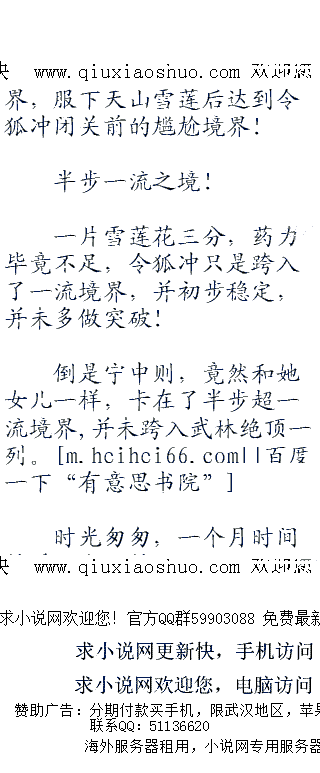 快 www.qiuxiaoshuo.com 欢迎您
界，服下天山雪莲后达到令
狐冲闭关前的尴尬境界！
半步一流之境！
一片雪莲花三分，药力
毕竟不足，令狐冲只是跨入
了一流境界，并初步稳定，
并未多做突破！
倒是宁中则，竟然和她
女儿一样，卡在了半步超一
流境界,并未跨入武林绝顶一
列。[m.hcihci66.com||百度
一下“有意思书院”]
时光匆匆，一个月时间
快 www.qiuxiaoshuo.com 欢迎您
求小说网欢迎您! 官方QQ群59903088 免费最新
求小说网更新快，手机访问
求小说网欢迎您，电脑访问
赞助广告：分期付款买手机，限武汉地区，苹果
联系QQ：51136620
海外服务器租用，小说网专用服务器